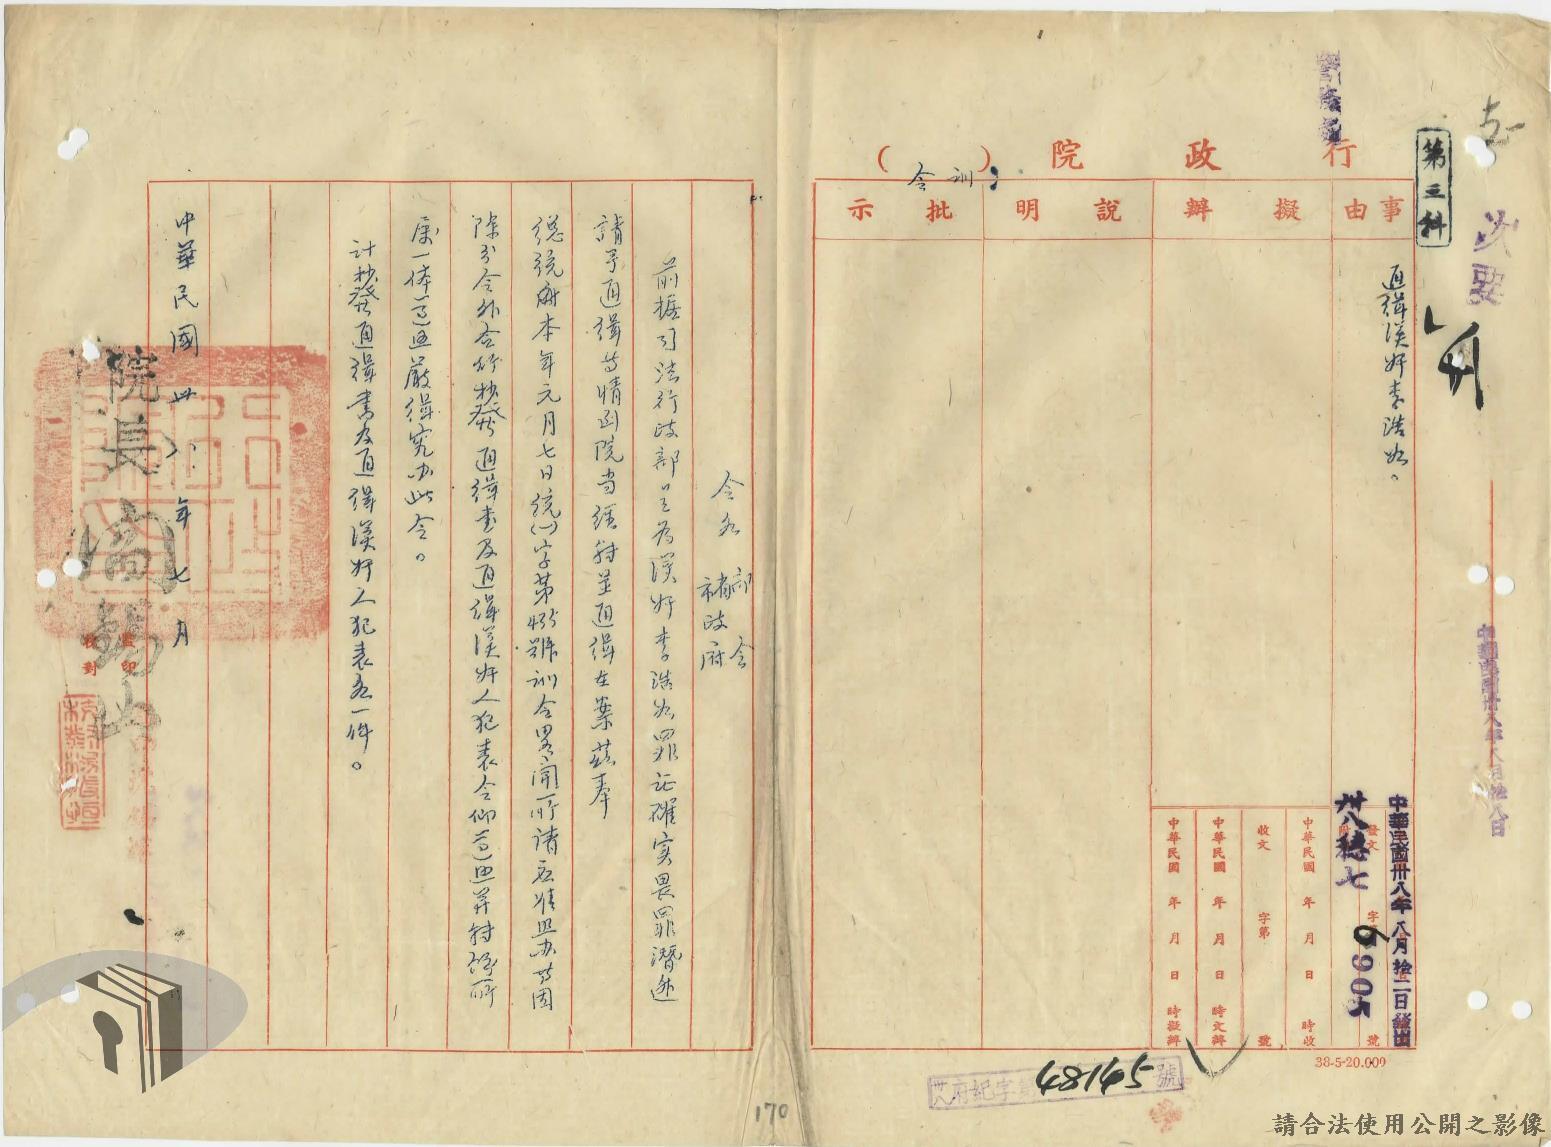 行政院(訓令)
第三科
次要
事由
擬辦
說明
批示
通緝漢奸李浩然。
中華民國卅八年八月拾二日發出
卅八穗七
6905
發文 字 號
中華民國 年 月 日 時收
收文 字第 號
中華民國 年 月 日 時文辦
中華民國 年 月 日 時擬辦
38-5-20.000
卅八府紀字第48145號
令各 部會 省政府
前據司法行政部呈為漢奸李浩然罪証確實畏罪潛逃
請予通緝等情到院當經轉呈通緝在案茲奉
總統府本年元月七日統(一)字第 號訓令畧開所請應准照办等因
除分令外合行抄發通緝書及通緝漢奸人犯表令仰遵照并轉飭所
屬一体遵照嚴緝究办此令。
計抄發通緝書及通緝漢奸人犯表各一件。
院長閻錫山
中華民國卅八年七月
監印
校對
170
請合法使用公開之影像